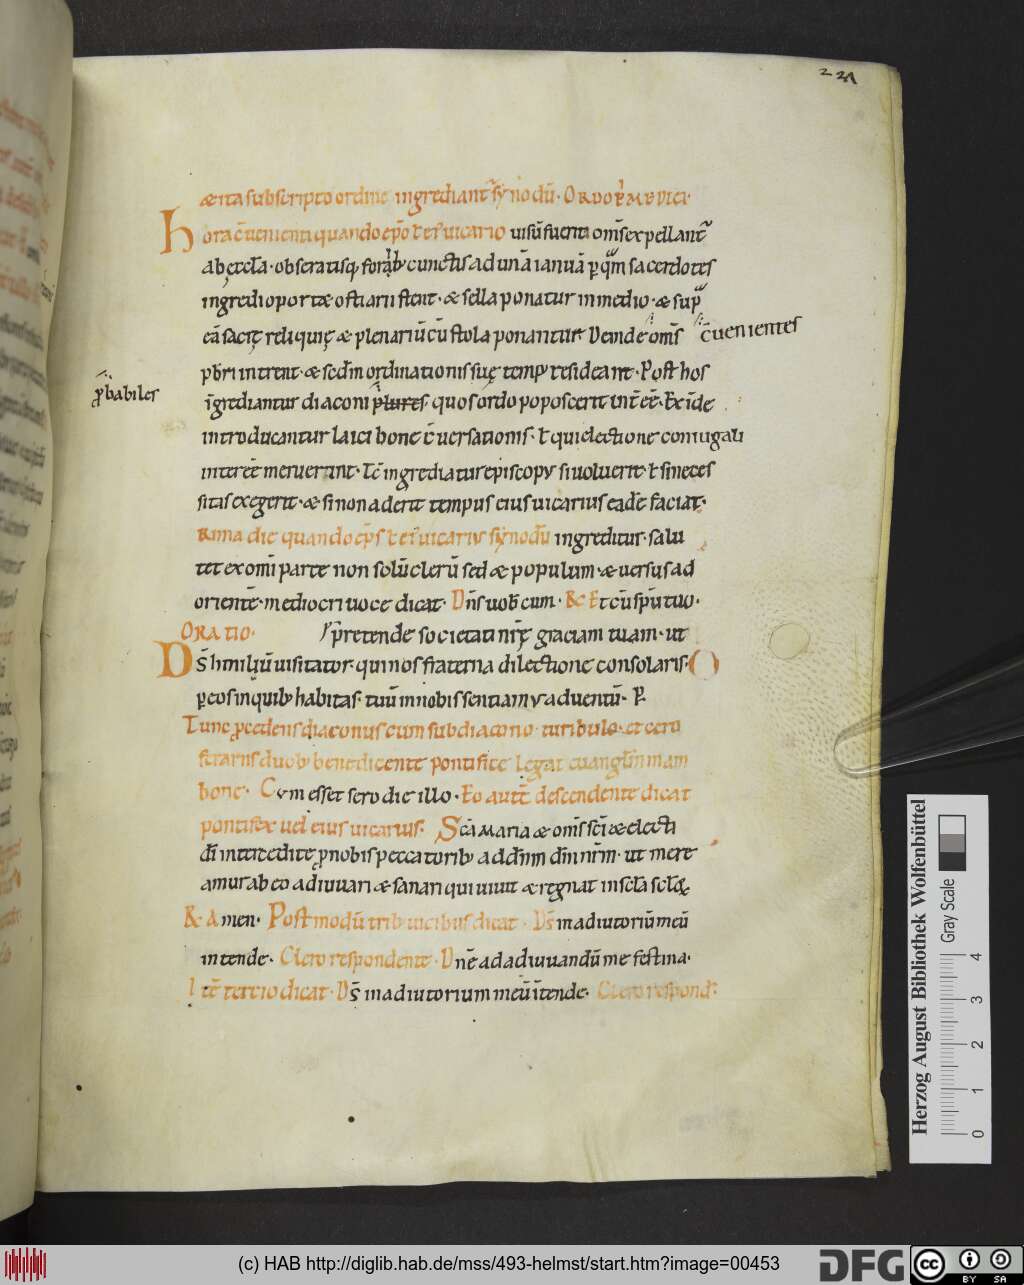 221
& ita subscripto ordine ingrediant̃ sẏnodũ·
Hora c̃uenienti quando ep̃o ł ei' uicario uisũ fuerit om̃s expellant̃
ab ęccła· obseratisq; forib; cunctis ad unã ianuã ꝑ quã sacerdotes
ingredi oportæ ostiarii stent· & sella ponatur in medio· & sup
eã sacię reliquię & plenariũ cũ stola ponantur Deinde om̃s c̃uenientes
pb̃ri intrent· & scđm ordinationis suę temp' resideant· Post hos
p̃babiles
ĩgrediantur diaconi plures· quos ordo poposcerit int̃ eẽ· Exĩde
introducantur laici bonę c̃uersationis· ł qui electione coniugali
intereẽ meruerint· Tc̃ ingrediatur episcopus si uoluerit ł si neces
sitas exegerit· & si non aderit tempus eius uicarius eadẽ faciat·
Prima die quando ep̃s ł ei' uicarius sẏnodũ ingreditur· salu
tet ex omĩ parte non solũ clerũ sed & populum· & uersus ad
orientẽ· mediocri uoce dicat· Dñs uob̃cum· & Et cũ sp̃u tuo·
ORATIO· p̃retende societati nr̃ę graciam tuam· ut
Ds̃ humiliũ uisitator· qui nos fraterna dilectione consolaris·
ꝑ eos in quib; habitas· tuũ in nobis sentiamus aduentũ· P̱
Tunc p̱cedens diaconus cum subdiacono· turibulo· et cero
ferariis duob; benedicente pontifice legat euangł̃m in am
bone· Cum esset sero die illo· Eo aut̃ descendente dicat
pontifex uel eius uicarius· Sc̃a MARIA & om̃s sc̃i & electi
dĩ intercedite p̱nobis peccatorib; ad dñm dm̃ nr̃m· ut mere
amur ab eo adiuuari & sanari qui uiuit & regnat in scła scło℞
& Amen· Postmodũ trib; uicibus dicat· Ds̃ in adiutoriũ meũ
intende· Clero respondente· Dnẽ ad adiuuandũ me festina·
Itẽ tercio dicat· Ds̃ in adiutorium meũ ĩtende· Clero respond·
Herzog August Bibliothek Wolfenbüttel
Gray Scale
0 1 2 3 4
(c) HAB http://diglib.hab.de/mss/493-helmst/start.htm?image=00453
DFG
cc BY SA